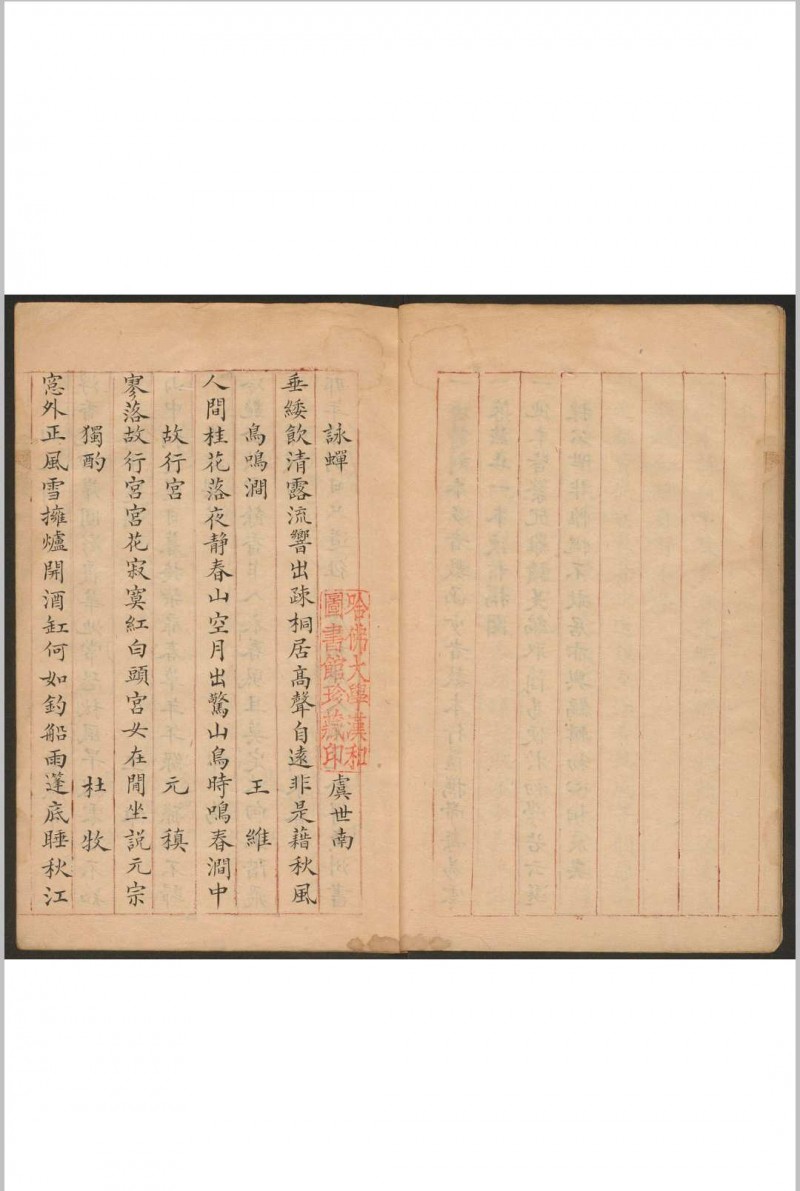 詠蟬 虞世南
垂緌飲清露流響出疎桐居髙聲自遠非是藉秋風
鳥鳴澗 王維
人間桂花落夜静春山空月出驚山鳥時鳴春澗中
故行宮 元稹
寥落故行宮宮花寂寞紅白頭宮女在閒坐説元宗
獨酌 杜牧
窓外正風雪擁爐開酒缸何如釣船雨蓬底睡秋江
哈佛大學漢和
圖書館珍藏印